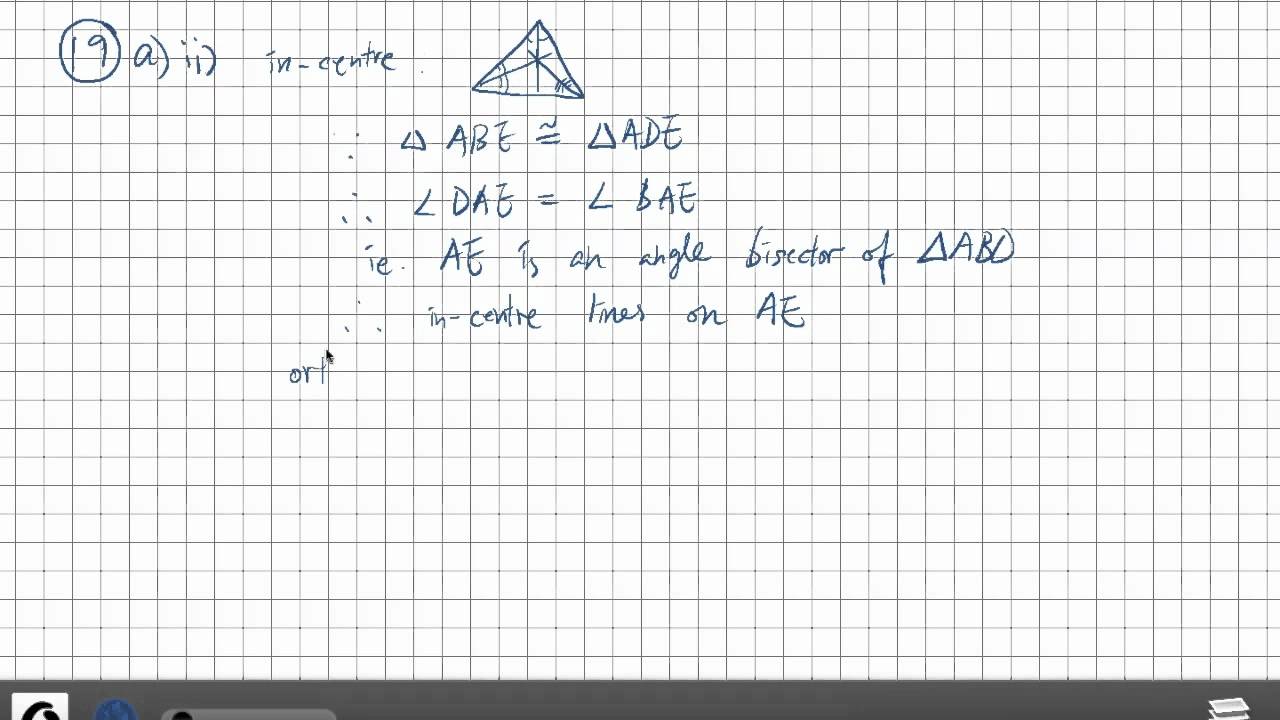 19 a) ii) in-centre
∵ Δ ABE ≅ ΔADE
∴ ∠ DAE = ∠ BAE
ie. AE is an angle bisector of ΔABD
∴ in-centre lines on AE
ort